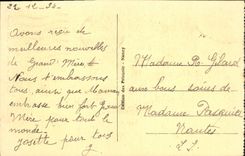 22-12-34
Avons reçu de
meilleures nouvelles
de Grand' Mère &
Nous t'embrassons
tous, ainsi que Maman
embrasse bien fort Grand
Mère pour tout le
monde.
Josette pour tous
Madame
aux bons soins de
Madame Pasquier
Nantes